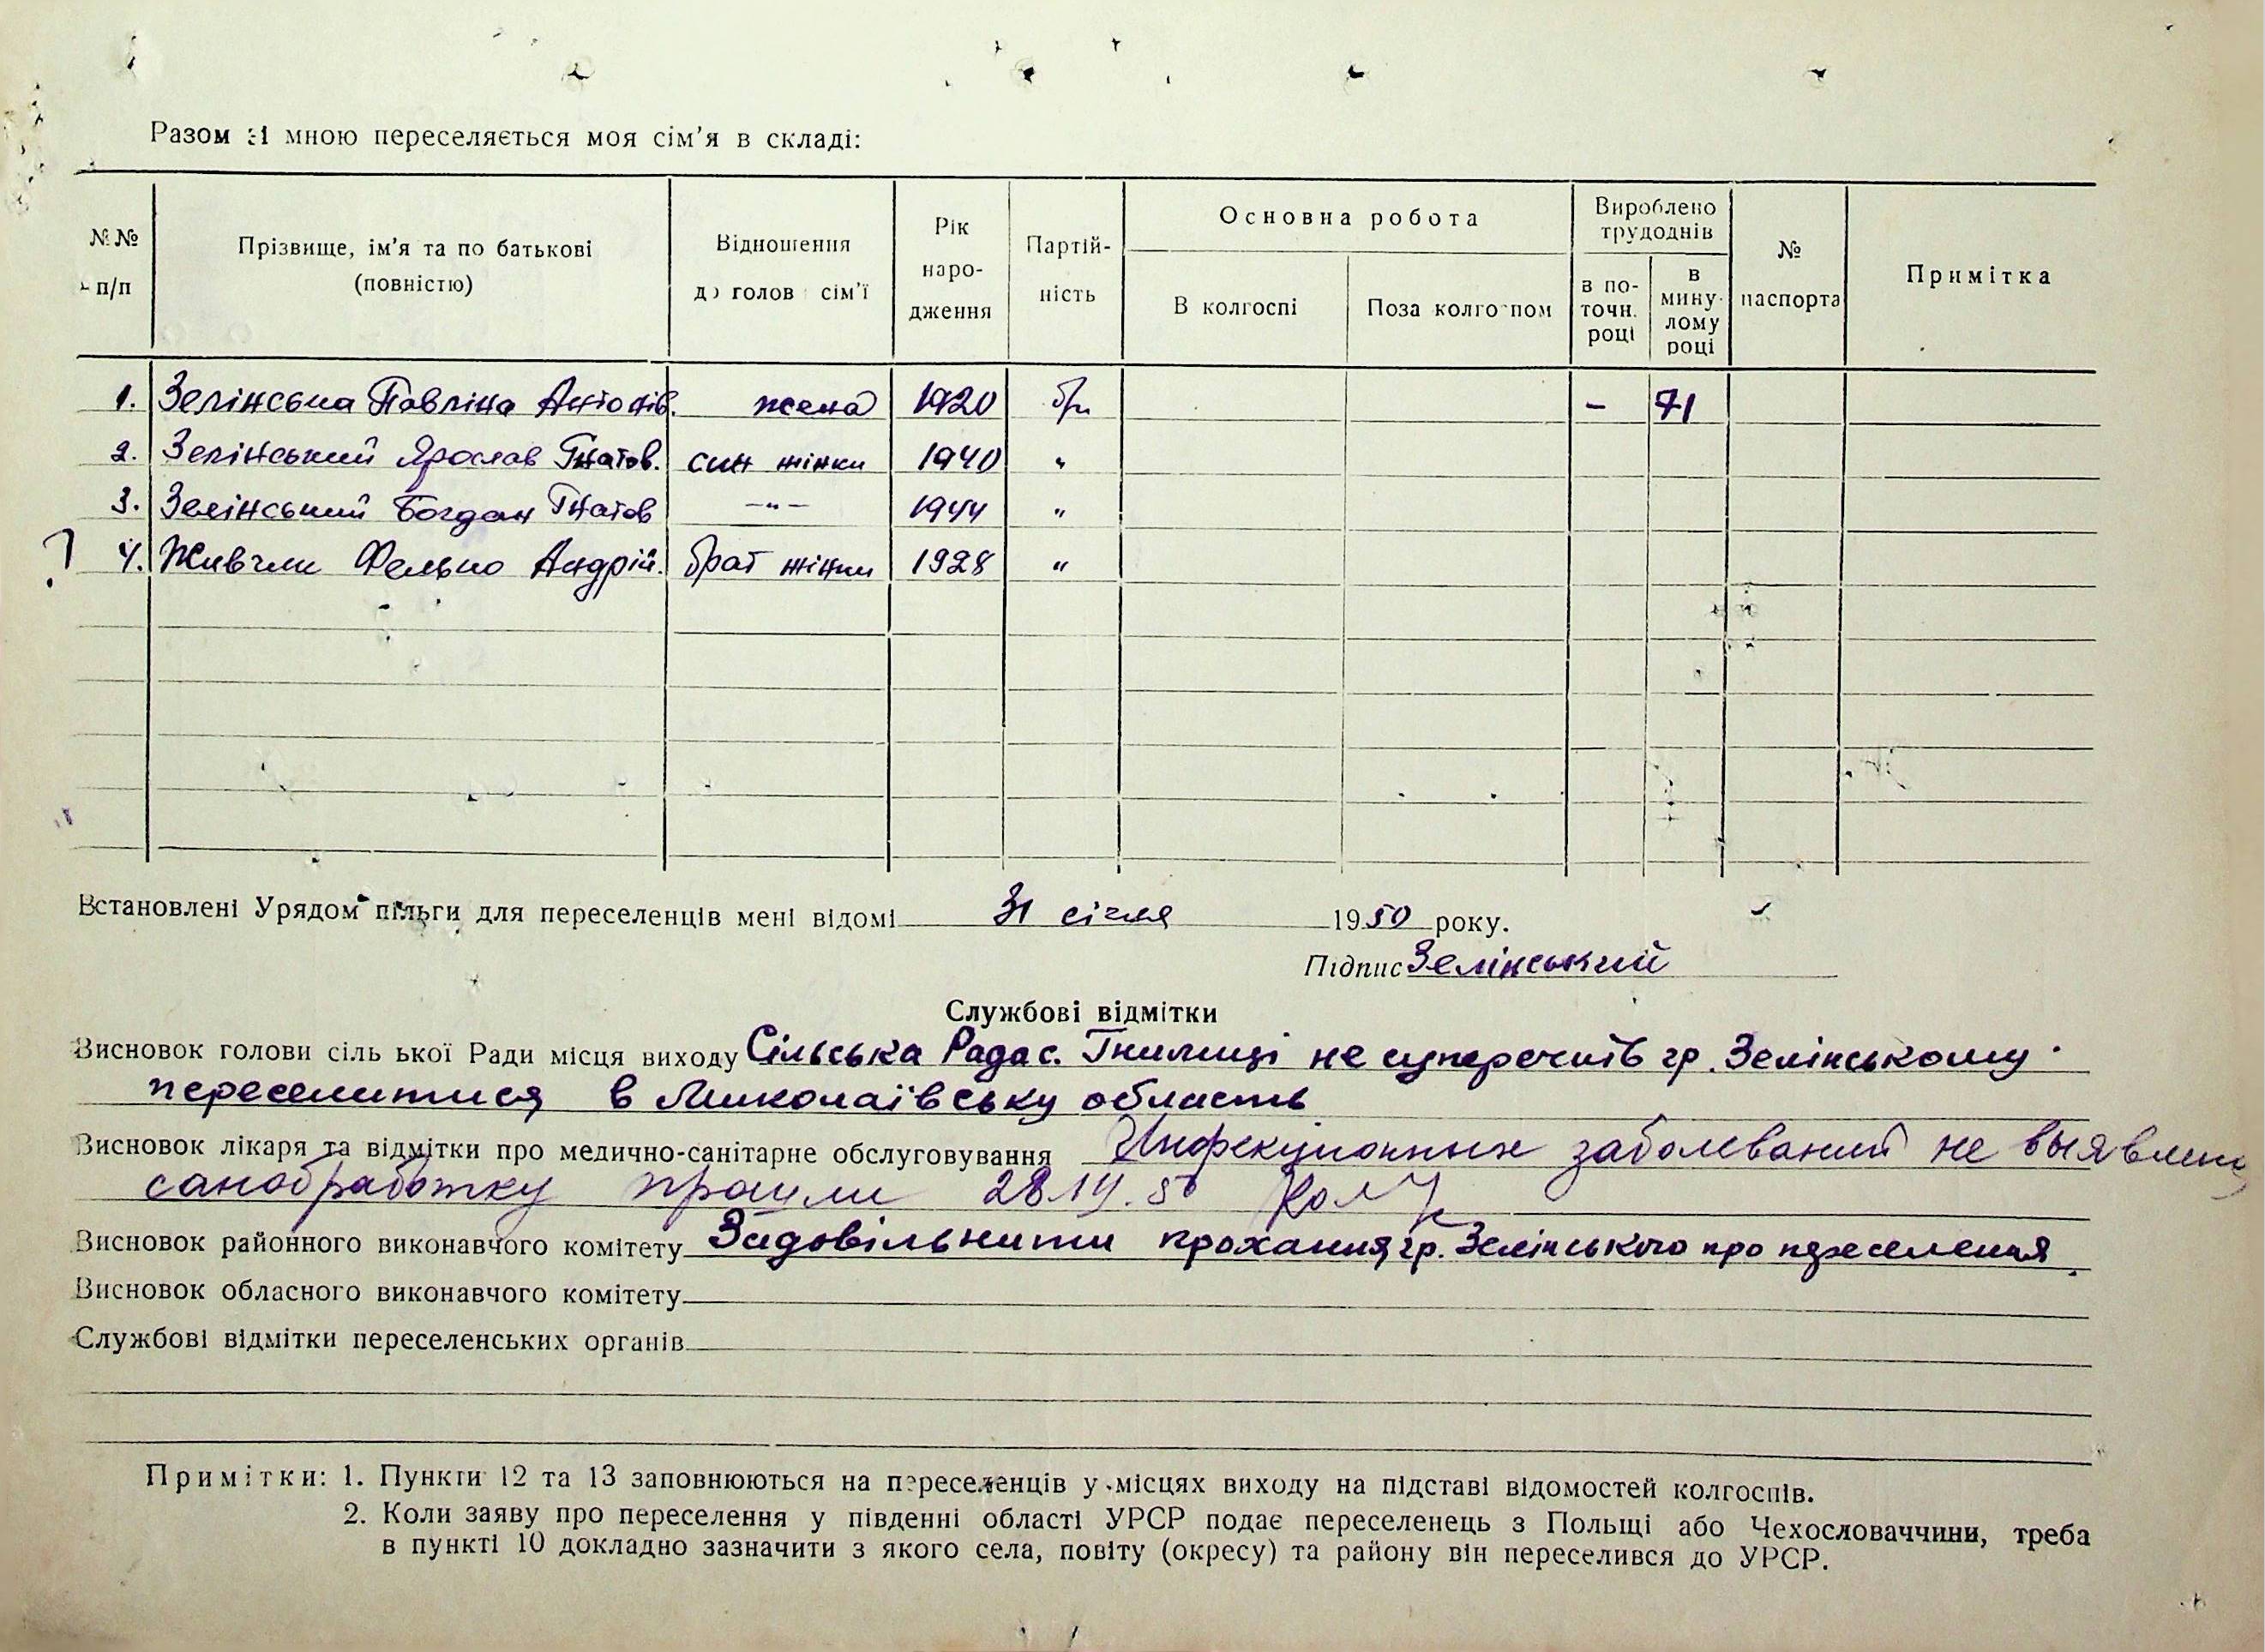 Разом зі мною переселяється моя сім'я в складі:
№№ п/п
Прізвище, ім'я та по батькові (повністю)
Відношення до голов сім'ї
Рік народження
Партійність
Основна робота
В колгоспі
Поза колгоспом
Вироблено трудоднів
в поточн. році
в минулому році
№ паспорта
Примітка
1. Зелінська Павліна Антонів. жена 1920 бп – 71
2. Зелінський Ярослав Гнатов. син жінки 1940 "
3. Зелінський Богдан Гнатов –"– 1944 "
? 4. Фелько Андрій. брат жінки 1928 "
Встановлені Урядом пільги для переселенців мені відомі 31 січня 1950 року.
Підпис Зелінський
Службові відмітки
Висновок голови сільської Ради місця виходу Сільська Рада с. Гнилиці не суперечить гр. Зелінському
переселитися в Миколаївську область
Висновок лікаря та відмітки про медично-санітарне обслуговування Инфекционных заболеваний не выявлено
санобработку прошли 28.IV.50
Висновок районного виконавчого комітету Задовільнити прохання гр. Зелінського про переселення.
Висновок обласного виконавчого комітету
Службові відмітки переселенських органів
Примітки: 1. Пункти 12 та 13 заповнюються на переселенців у місцях виходу на підставі відомостей колгоспів.
2. Коли заяву про переселення у південні області УРСР подає переселенець з Польщі або Чехословаччини, треба
в пункті 10 докладно зазначити з якого села, повіту (окресу) та району він переселився до УРСР.